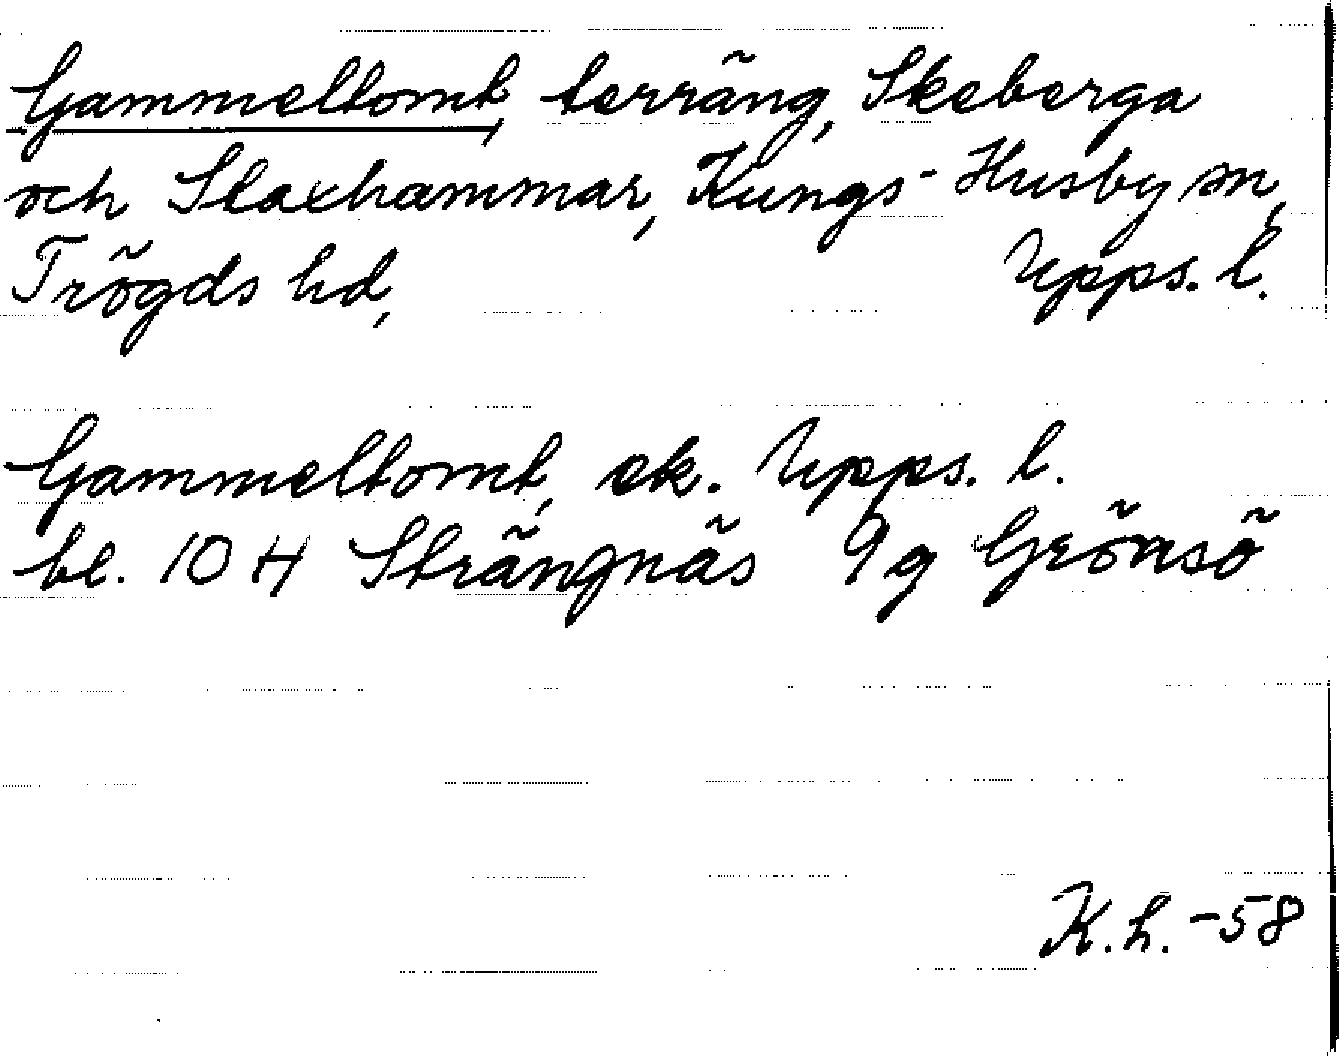 Gammeltomt, terräng, Skeberga
och Slaxhammar, Kungs-Husby sn,
Trögds hd, Upps. l.
Gammeltomt, ek. Upps. l.
bl. 10 H Strängnäs 9 g Grönsö
K.h. -58